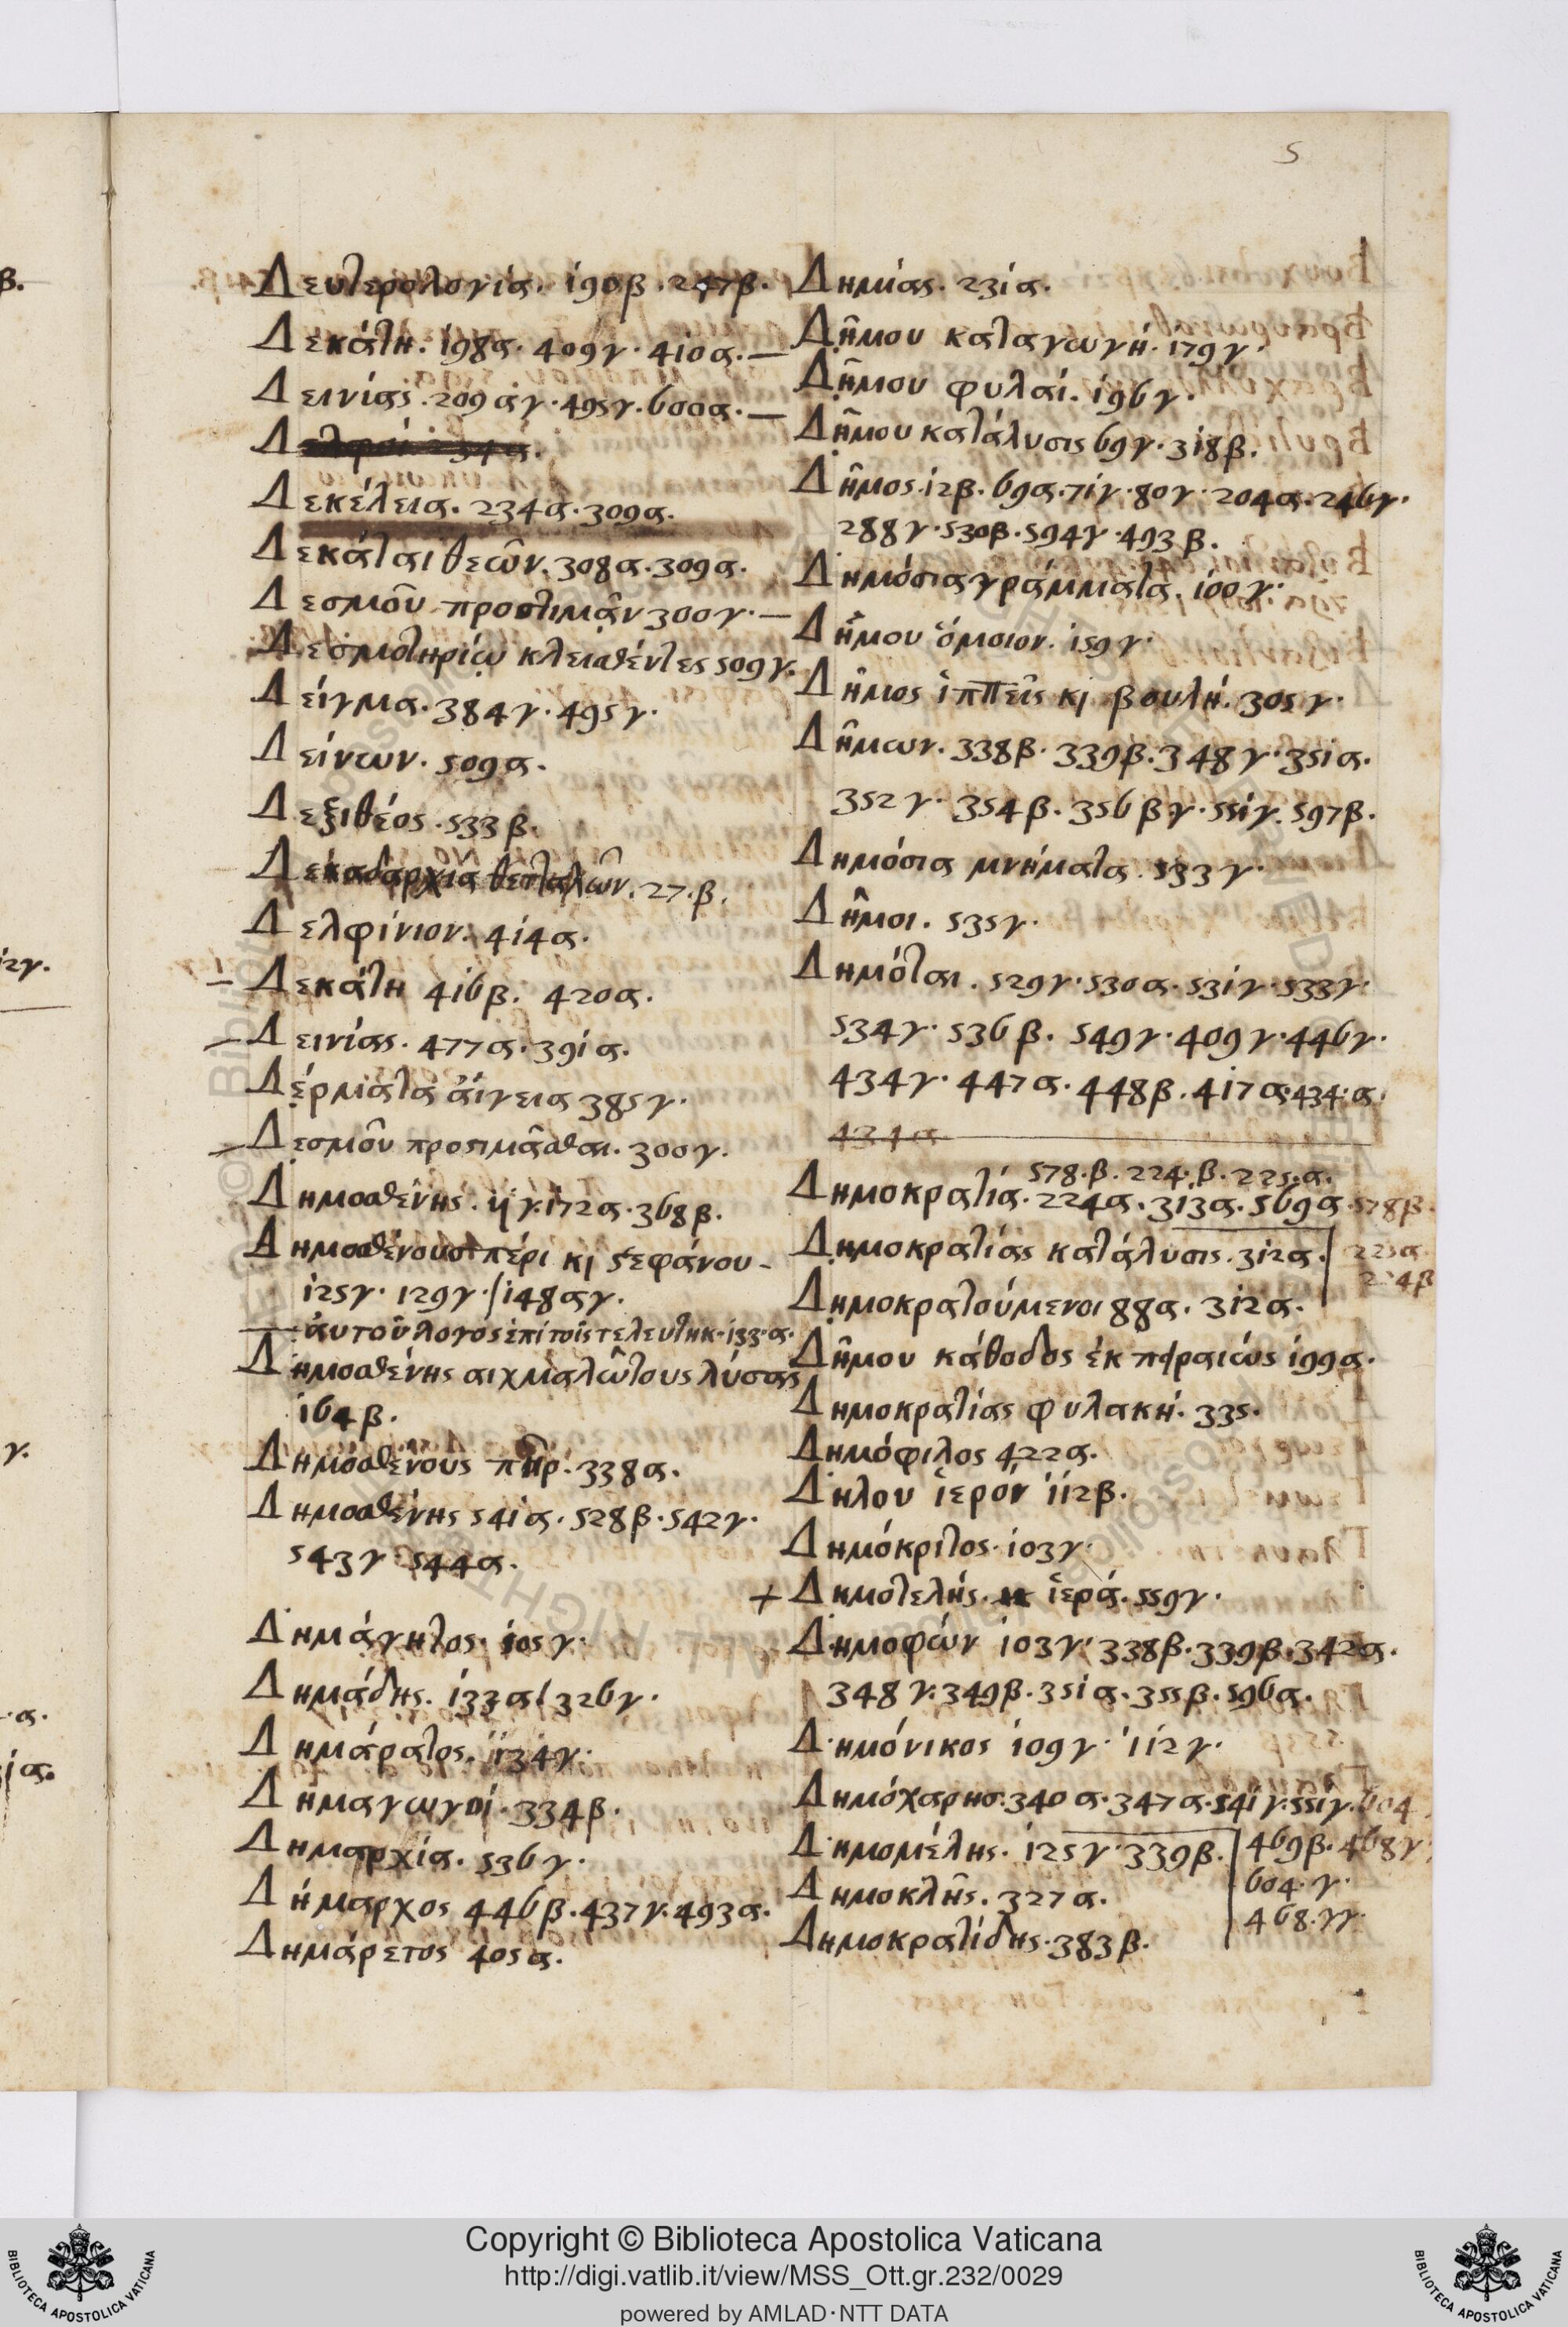 5
Δευτερολογία. 190β. 247β.
Δεκάτη. 198α. 409γ. 410α.—
Δεινίας. 209αγ. 495γ. 600α.—
Δεκέλεια. 234α. 309α.
Δεκάται θεῶν. 308α. 309α.
Δεσμοῦ προστιμᾶν 300γ.—
Δεσμωτηρίω κλεισθέντες 509γ.
Δείγμα. 384γ. 495γ.
Δείνων. 509α.
Δεξιθέος. 533β.
Δεκαδαρχία θετταλῶν. 27.β.
Δελφίνιον. 414α.
– Δεκάτη 416β. 420α.
– Δεινίας. 477α. 391α.
Δέρματα αἴγεια 385γ.
– Δεσμοῦ προστιμᾶσθαι. 300γ.
Δημοσθένης. γ. 172α. 368β.
Δημοσθένους περι κ στεφάνου–
125γ. 129γ. 148αγ.
— αυτοῦ λογός ἐπί τοῖς τελευτηκ. 133.α.
Δημοσθένης αιχμαλώτους λύσας
164β.
Δημοσθένους πηρ. 338α.
Δημοσθένης 541α. 528β. 542γ.
543γ. 544α.
Δημάγητος. 105γ.
Δημάδης. 133α. 326γ.
Δημάρατος. 134γ.
Δημαγωγοί. 334β.
Δημαρχία. 536γ.
Δήμαρχος 446β. 437γ. 493α.
Δημάρετος 405α.
Δημίας. 231α.
Δῆμου καταγωγή. 179γ.
Δῆμου φυλαί. 196γ.
Δῆμου κατάλυσις 69γ. 318β.
Δῆμος. 12β. 69α. 71γ. 80γ. 204α. 246γ.
288γ. 530β. 594γ. 493β.
Δημόσια γράμματα. 100γ.
Δήμου όμοιον. 159γ.
Δῆμος ἱππεῖς κ βουλή. 305γ.
Δῆμων. 338β. 339β. 348γ. 351α.
352γ. 354β. 356βγ. 551γ. 597β.
Δημόσια μνήματα. 533γ.
Δῆμοι. 535γ.
Δημόται. 529γ. 530α. 531γ. 533γ.
534γ. 536β. 549γ. 409γ. 446γ.
434γ. 447α. 448β. 417α. 434.α.
434α
578.β. 224.β. 225.α.
Δημοκρατία. 224α. 313α. 569α. 578β.
Δημοκρατίας κατάλυσις. 312α. 225α
224β
Δημοκρατούμενοι 88α. 312α.
Δῆμου κάθοδος ἐκ πφραιώς 199α.
Δημοκρατίας φυλακή. 335.
Δημόφιλος 422α.
Δηλου ἱερόν 112β.
Δημόκριτος. 103γ.
+ Δημοτελής. ἱερά. 559γ.
Δημοφών 103γ. 338β. 339β. 342α.
348γ. 349β. 351α. 355β. 596α.
Δημόνικος 109γ. 112γ.
Δημόχαρης. 340α. 347α. 541γ. 551γ. 604
Δημομέλης. 125γ. 339β. 469β. 468γ.
Δημοκλῆς. 327α. 604.γ.
468.γγ.
Δημοκρατίδης. 383β.
Copyright © Biblioteca Apostolica Vaticana
http://digi.vatlib.it/view/MSS_Ott.gr.232/0029
powered by AMLAD·NTT DATA
BIBLIOTECA APOSTOLICA VATICANA
BIBLIOTECA APOSTOLICA VATICANA